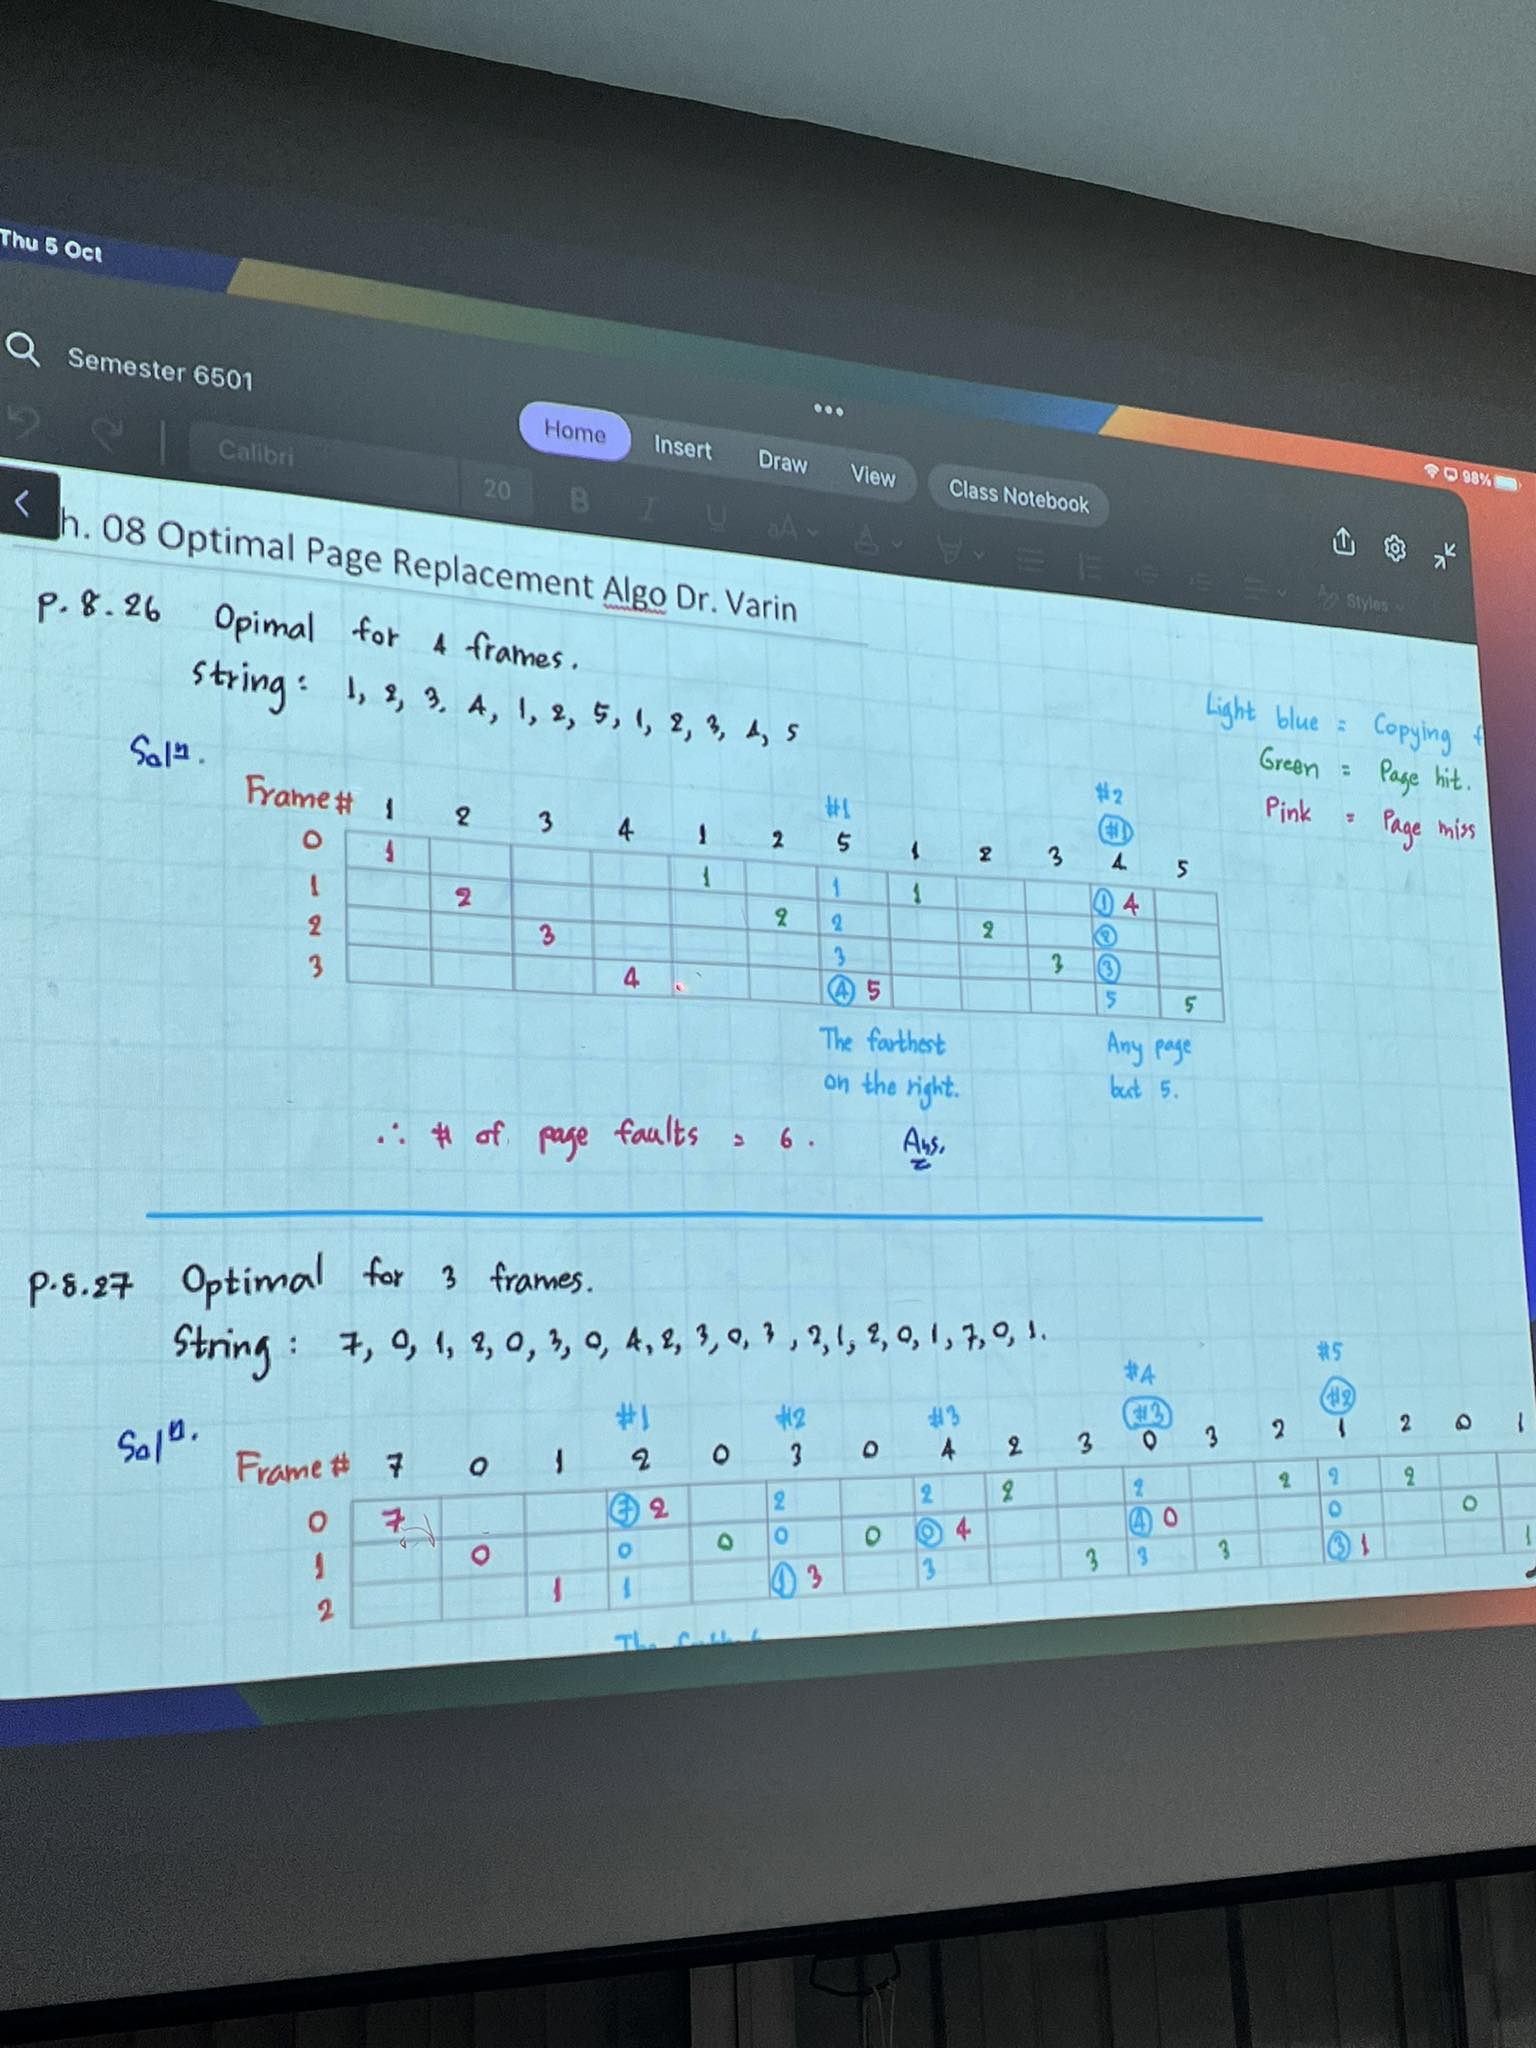 Thu 5 Oct
98%
Semester 6501
Home Insert Draw View Class Notebook
Calibri 20 B I U aA A Styles
h. 08 Optimal Page Replacement Algo Dr. Varin
p. 8.26 Opimal for 4 frames.
String: 1, 2, 3, 4, 1, 2, 5, 1, 2, 3, 4, 5
Light blue = Copying f
Green = Page hit.
Pink = Page miss
Solⁿ.
#1 #2
#1
Frame # 1 2 3 4 1 2 5 1 2 3 4 5
0 1 1 1 1 1 4
1 2 2 2 2 2
2 3 3 3 3
3 4 4 5 5 5
The farthest on the right.
Any page but 5.
∴ # of page faults = 6. Ans.
p.8.27 Optimal for 3 frames.
String: 7, 0, 1, 2, 0, 3, 0, 4, 2, 3, 0, 3, 2, 1, 2, 0, 1, 7, 0, 1.
Solⁿ.
#1 #2 #3 #4 #5
#3 #2
Frame # 7 0 1 2 0 3 0 4 2 3 0 3 2 1 2 0 1
0 7 7 2 2 2 2 2 2 2 2
1 0 0 0 0 0 0 4 4 0 0 0
2 1 1 1 3 3 3 3 3 3 1 1